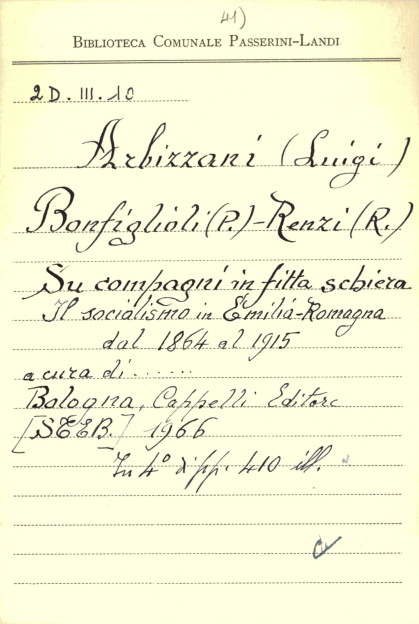 41)
BIBLIOTECA COMUNALE PASSERINI-LANDI
2D. III. 10
Arbizzani (Luigi)
Bonfiglioli (P.) - Renzi (R.)
Su compagni in fitta schiera
Il socialismo in Emilia-Romagna
dal 1864 al 1915
a cura di ......
Bologna, Cappelli Editore
[S.E.E.B.] 1966
In 4° di pp. 410 ill.